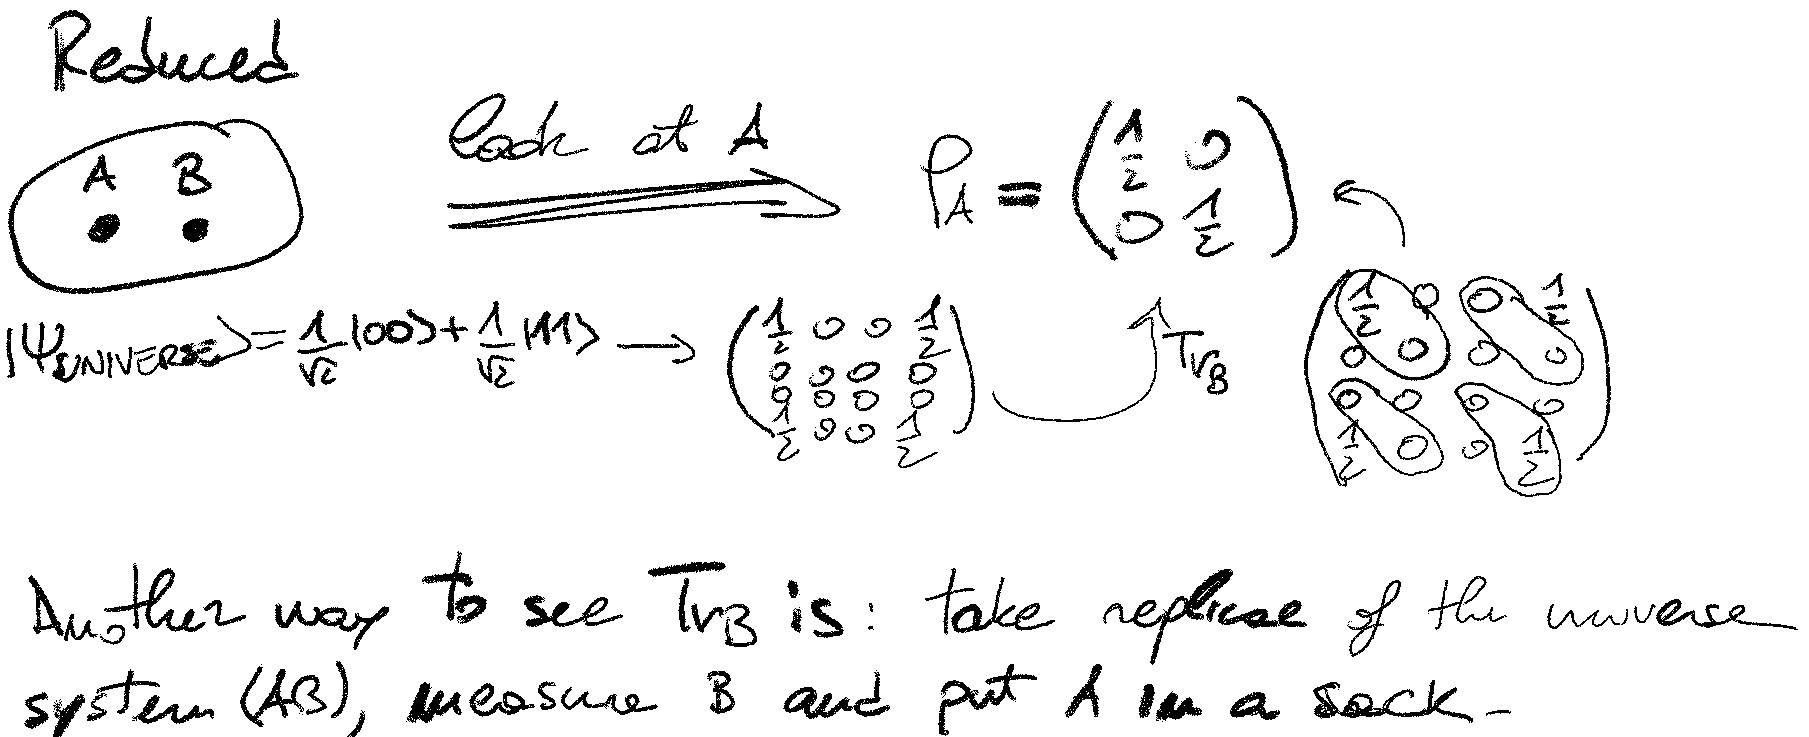 Reduced
A B
look at A
ρ_A = (1/2 0
0 1/2)
|Ψ_UNIVERSE> = 1/√2 |00> + 1/√2 |11> →
(1/2 0 0 1/2
0 0 0 0
0 0 0 0
1/2 0 0 1/2)
Tr_B
(1/2 0 0 1/2
0 0 0 0
0 0 0 0
1/2 0 0 1/2)
Another way to see Tr_B is: take replicae of the universe
system (AB), measure B and put A in a sack.